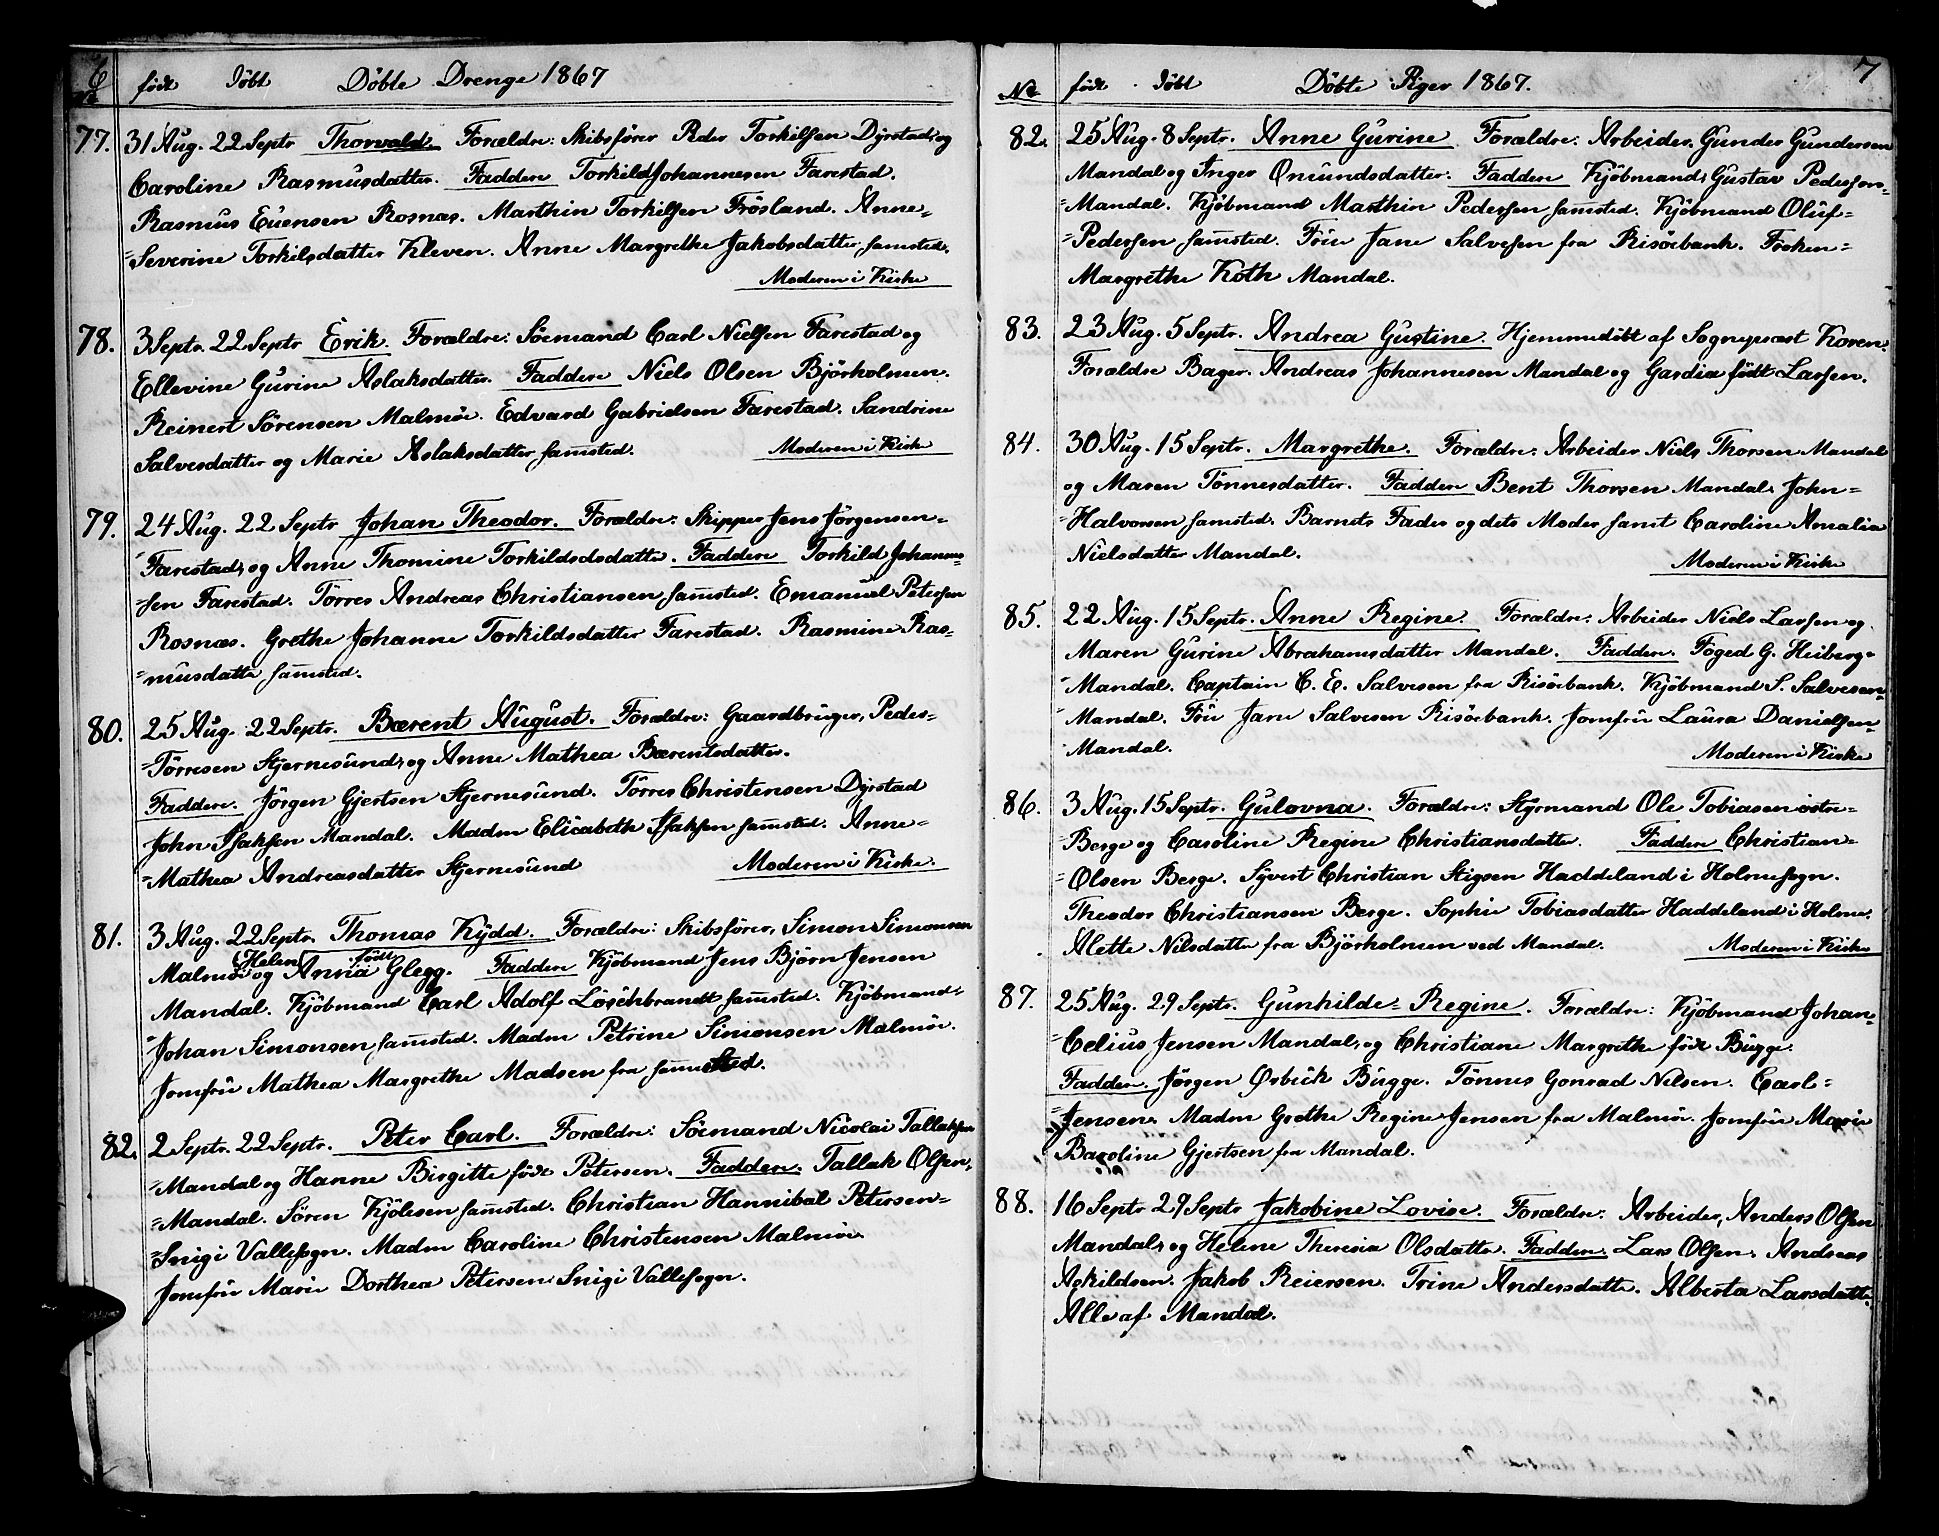 6
No født døbt Døbte Drenge 1867
77. 31 Aug. 22 Septr Thorvald. Forældre: Skibsfører Peder Torkilsen Dyrstad, og
Caroline Rasmusdatter. Faddere Torkild Johannesen Farestad.
Rasmus Evensen Rosnæs. Marthin Torkilsen Frøsland. Anne-
-Severine Torkilsdatter Kleven. Anne Margrethe Jakobsdatter samsted.
Moderen i Kirke
78. 3 Septr. 22 Septr Erik. Forældre: Sømand Carl Nielsen Farestad og
Ellevine Gurine Aslaksdatter. Faddere Niels Olsen Bjørholmen.
Reinert Sørensen Malmøe. Edvard Gabrielsen Farestad. Sandrine
Salvesdatter og Marie Aslaksdatter samsted. Moderen i Kirk
79. 24 Aug. 22 Septr Johan Theodor. Forældre: Skipper Jens Jørgensen-
-Farestad, og Anne Thomine Torkildsdsdatte. Faddere Torkild Johanne-
-sen Farestad. Tørres Andreas Christiansen samsted. Emanuel Petersen
Rosnæs. Grethe Johanne Torkildsdatter Farestad. Rasmine Ras-
-musdatte samsted.
80. 25 Aug. 22 Septr. Bærent August. Forældre: Gaardbruger, Peder-
-Tørresen Skjernesund, og Anne Mathea Bærentsdatter.
Faddere. Jørgen Gjertsen Skjernesund. Tørres Christensen Dyrstad
John Isaksen Mandal. Madm Elisabeth Isaksen samsted. Anne-
-Mathea Andreasdatter Skjernesund Moderen i Kirke.
81. 3 Aug. 22 Septr. Thomas Kydd. Forældre: Skibsfører, Simon Simonsen
Malmøe og Helen Anna født Glegg. Faddere Kjøbmand Jens Bjørn Jensen
Mandal. Kjøbmand Carl Adolf Løschbrandt samsted. Kjøbmand-
-Johan Simonsen samsted. Madm Petrine Simonsen Malmøe.
Jomfrü Mathea Margrethe Madsen fra samsted.
82. 2 Septr. 22 Septr. Peter Carl. Forældre: Sømand Nicolai Tallaksen
-Mandal og Hanne Birgitte født Petersen. Faddere. Tallak Olsen,
-Mandal. Søren Kjølesen samsted. Christian Hannibal Petersen-
-Snig i Vallesogn. Madm Caroline Christensen Malmøe.
Jomfrü Marie Dorthea Petersen Snig i Vallesogn.
7
No født døbt Døbte Piger 1867.
82. 25 Aug. 8 Septr. Anne Gurine. Forældre: Arbeider, Gunder Gundersen
Mandal og Inger Omundsdatter. Faddere Kjøbmand, Gustav Pedersen-
-Mandal. Kjøbmand Marthin Pedersen samsted. Kjøbmand Oluf-
-Pedersen samsted. Frü Jane Salvesen fra Risøebank. Frøken-
Margrethe Koth Mandal.
83. 23 Aug. 5 Septr. Andrea Gustine. Hjemmedøbt af Sogneprest Koren.
Forældre Bager. Andreas Johannesen Mandal og Gardia født Larsen.
84. 30 Aug. 15 Septr. Margrethe. Forældre: Arbeider Niels Thorsen Mandal
og Maren Tønnesdatter. Faddere Bent Thorsen Mandal. John-
-Halvorsen samsted. Barnets Fader og dets Moder samt Caroline Amalia
Nielsdatter Mandal. Moderen i Kirke
85. 22 Aug. 15 Septr. Anne Regine. Forældre: Arbeider Niels Larsen og
Maren Gurine Abrahamsdatter Mandal. Faddere. Foged G. Heiberg-
-Mandal. Captain C. E. Salvesen fra Risøebank. Kjøbmand S. Salvesen-
-Mandal. Frü Jane Salvesen Risøebank. Jomfrü Laura Danielsen-
-Mandal. Moderen i Kirke
86. 3 Aug. 15 Septr. Gulovna. Forældre: Styrmand Ole Tobiasen østre-
-Berge og Caroline Regine Christiansdatte. Faddere Christian-
-Olsen Berge. Syvert Christian Stigsen Haddeland i Holmesogn.
Theodor Christiansen Berge. Sophie Tobiasdatter Haddeland i Holme.
Alette Nilsdatte fra Bjørholmen ved Mandal. Moderen i Kirke
87. 25 Aug. 29 Septr. Gunhilde-Regine. Forældre: Kjøbmand Johan-
-Celius Jensen Mandal, og Christiane Margrethe født Bugge.
Faddere. Jørgen Ørbeck Bugge. Tønnes Gonrad Nilsen. Carl-
-Jensen. Madm Grethe Regine Jensen fra Malmøe. Jomfrü Marie
Baroline Gjertsen fra Mandal.
88. 16 Septr 29 Septr Jakobine Lovise. Forældre: Arbeider, Anders Olsen
Mandal, og Helene Theresia Olsdatte. Faddere. Lars Olsen. Andreas
Askildsen. Jakob Reiersen. Trine Andersdatte. Alberta Larsdatte.
Alle af Mandal.